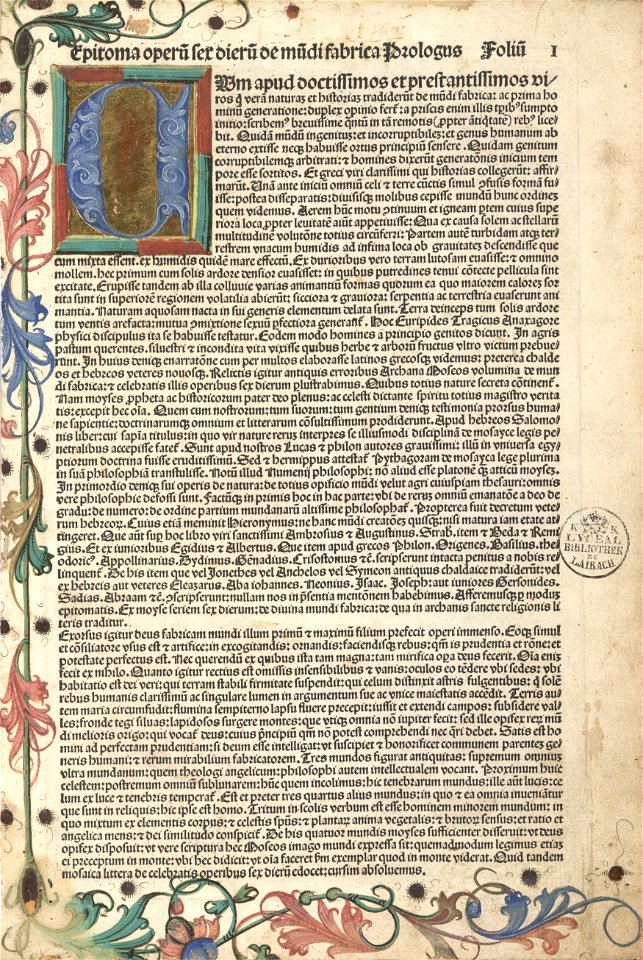 Epitoma operũ sex dierũ de mũdi fabrica Prologus Foliũ I
CUm apud doctissimos et prestantissimos vi/
ros q̃ verã naturaz et historias tradiderũt de mũdi fabrica: ac prima ho
minũ generatione: duplex opinio fert̃: a priscis enim illis tp̃ib⁹ sumpto
initio: scribem⁹ breuissime q̃ntũ in tã remotis (ꝓpter ãtiq̃tatẽ) reb⁹ licẽ/
bit. Quidã mũdũ ingenitus: et incorruptibilẽ: et genus humanum ab
eterno extisse neqꝫ habuisse ortus principiũ sensere. Quidam genitum
corruptibilemqꝫ arbitrati: et homines dixerũt generatõnis inicium tem
pore esse sortitos. Et greci viri clarissimi qui historias collegerũt: affir/
marũt. Unã ante iniciũ omniũ celi et terre cũctis simul ꝯfusis formã fu/
isse: postea disseparatis: diuisisqꝫ molibus cepisse mundũ hunc ordinẽ
quem videmus. Aerem hũc motu ꝯtinuum et igneam ptem cuius supe
riora loca ꝓpter leuitatẽ aüit appetiuisse: Qua ex causa solem ac stellarũ
multitudinẽ volutõne totius circũferri: Partem autẽ turbidam atqꝫ ter/
restrem vnacum humidis ad infima loca ob grauitatẽ descendisse que
cum mixta essent. ex humidis quidẽ mare effectũ. Ex durioribus vero terram lutosam euasisse: et omnino
mollem. hec primum cum solis ardore densior euasisset: in quibus putredines tenui cõtecte pellicula sint
excitate. Erupisse tandem ab illa colluuie varias animantiũ formas quorum ea quo maiorem calorẽ sor
tita sunt in superiorẽ regionem volatilia abierũt: succiora & grauiora: serpentia ac terrestria euaserunt ani
mantia. Naturam aquosam nacta in sui generis elementum delata sunt. Terra deinceps tum solis ardore
tum ventis arefacta: mutua ꝯmixtione sexuũ pfectiora generasse. Hoc Euripides Tragicus Anaxagore
physici discipulus ita se habuisse testatur. Eodem modo homines a principio genitos dicũt. In agris
pastum querentes. siluestri & incondita vita vixisse quibus herbe & arborũ fructus vltro victum prebue/
runt. In huius deniqꝫ enarratõne cum per multos elaborasse latinos grecosqꝫ videmus: preterea chalde
os et hebreos veteres nouosqꝫ. Relictis igitur antiquis erroribus Archana Moseos volumina de mun
di fabrica: & celebratis illius operibus sex dierum plustrabimus. Quibus totius nature secreta cõtinent̃.
Nam moyses ꝓpheta ac historicorum pater deo plenus: ac celesti dictante spiritu totius magistro verita
tis: excepit hec oĩa. Quem cum nostrorum: tum suorum: tum gentium deniqꝫ testimonia prorsus huma
ne sapientie: doctrinarumqꝫ omnium et litterarum cõsultissimum prodiderunt. Apud hebreos Salomo/
nis liber: cui sapĩa titulus: in quo vir nature rerum interpres se illiusmodi disciplinã de mosayce legis pe/
netralibus accepisse fatet̃. Sunt apud nostros Lucas & philon autores grauissimi: illũ in vniuersa egy/
ptiorum doctrina fuisse eruditissimũ. Sed & hermippus attestat̃ Pythagoram de mosayca lege plurima
in suã philosophiã transtulisse. Notũ illud Numenij philosophi: nõ aliud esse platonẽ qꝫ atticũ moysez.
In primordio deniqꝫ sui operis de natura: de totius opificio mũdi velut agri cuiuspiam thesauri: omnis
vere philosophie defossi sunt. Factũqꝫ in primis hoc in hac parte: vbi de rerum omniũ emanatõne a deo de
gradu: de numero: de ordine partium mundanarũ altissime philosophat̃. Propterea fuit decretum vete/
rum hebreorum. Cuius etiã meminit Hieronymus: ne hanc mũdi creatõem quisqꝫ: nisi matura iam etate at
tingeret. Que aũt sup hoc libro viri sanctissimi Ambrosius & Augustinus. Strab. item & Beda & Remi
gius. Et ex iunioribus Egidius & Albertus. Que item apud grecos Philon. Origenes. Basilius, the/
doricus. Appollinarius. Dydimus. Genadius. Crisostomus & c̃. scripserunt intacta penitus a nobis re
linquent̃. De his item que vel Jonethes vel Anchelos vel Symeon antiquus chaldaice tradiderũt: vel
ex hebreis aut veteres Eleazarus. Aba iohannes. Neonius, Isaac. Joseph: aut iuniores Gersonides.
Sadias. Abraam & c̃. ꝯscripserunt: nullam nos in p̃sentia mentõnem habebimus. Afferemusqꝫ p modus
epitomatis. Ex moyse seriem sex dierum: de diuina mundi fabrica: de qua in archanis sancte religionis li
teris traditur.
Exorsus igitur deus fabricam mundi illum primũ & maximũ filium prefecit operi immenso. Eoqꝫ simul
et cõsiliatore vsus est & artifice: in excogitandis: ornandis: faciendisqꝫ rebus: qm̃ is prudentia et rõne: et
potestate perfectus est. Nec querendũ ex quibus ista tam magna: tam mirifica opa deus fecerit. Oĩa enĩ
fecit ex nihilo. Quanto igitur rectius est omissis insensibilibus & vanis: oculos eo tẽdere vbi sedes: vbi
habitatio est dei veri: qui terram stabili firmitate suspendit: qui celum distinxit astris fulgentibus: q̃ solẽ
rebus humanis clarissimũ ac singulare lumen in argumentum sue ac vnice maiestatis accẽdit. Terris au
tem maria circumfudit: flumina sempiterno lapsu fluere precepit: iussit et extendi campos: subsidere val/
les: fronde tegi siluas: lapidosos surgere montes: que vtiqꝫ omnia nõ iupiter fecit: sed ille opifex rerum mũ
di melioris origo: qui vocat̃ deus: cuius p̃ncipiũ qm̃ nõ potest comprehendi nec q̃ri debet. Satis est ho
mini ad perfectam prudentiam: si deum esse intelligat: vt suscipiet & honorificet communem parentẽ ge/
neris humani: & rerum mirabilium fabricatorem. Tres mundos figurat antiquitas: supremum omniuz
vltra mundanum: quem theologi angelicum: philosophi autem intellectualem vocant. Proximum huic
celestem: postremum omniũ sublunarem: hũc quem incolimus: hic tenebrarum mundus: ille aũt lucis: ce
lum ex luce & tenebris temperat̃. Est et preter tres quartus alius mundus: in quo & ea omnia inueniãtur
que sunt in reliquis: hic ipse est homo. Tritum in scolis verbum est esse hominem minorem mundum: in
quo mixtum ex elementis corpus: & celestis spũs: & plantarum anima vegetalis: & brutorum sensus: et ratio et
angelica mens: & dei similitudo conspicit̃. De his quatuor mundis moyses sufficienter disseruit: vt deus
opifex disposuit: vt vere scriptura hec Moseos imago mundi expressa sit: quemadmodum legimus etiaz
ei preceptum in monte: vbi hec didicit: vt oĩa faceret fm̃ exemplar quod in monte viderat. Quid tandem
mosaica littera de celebratis operibus sex dierũ edocet: cursim absoluemus.
K K
LYCEAL
BIBLIOTHEK
ZU
LAIBACH